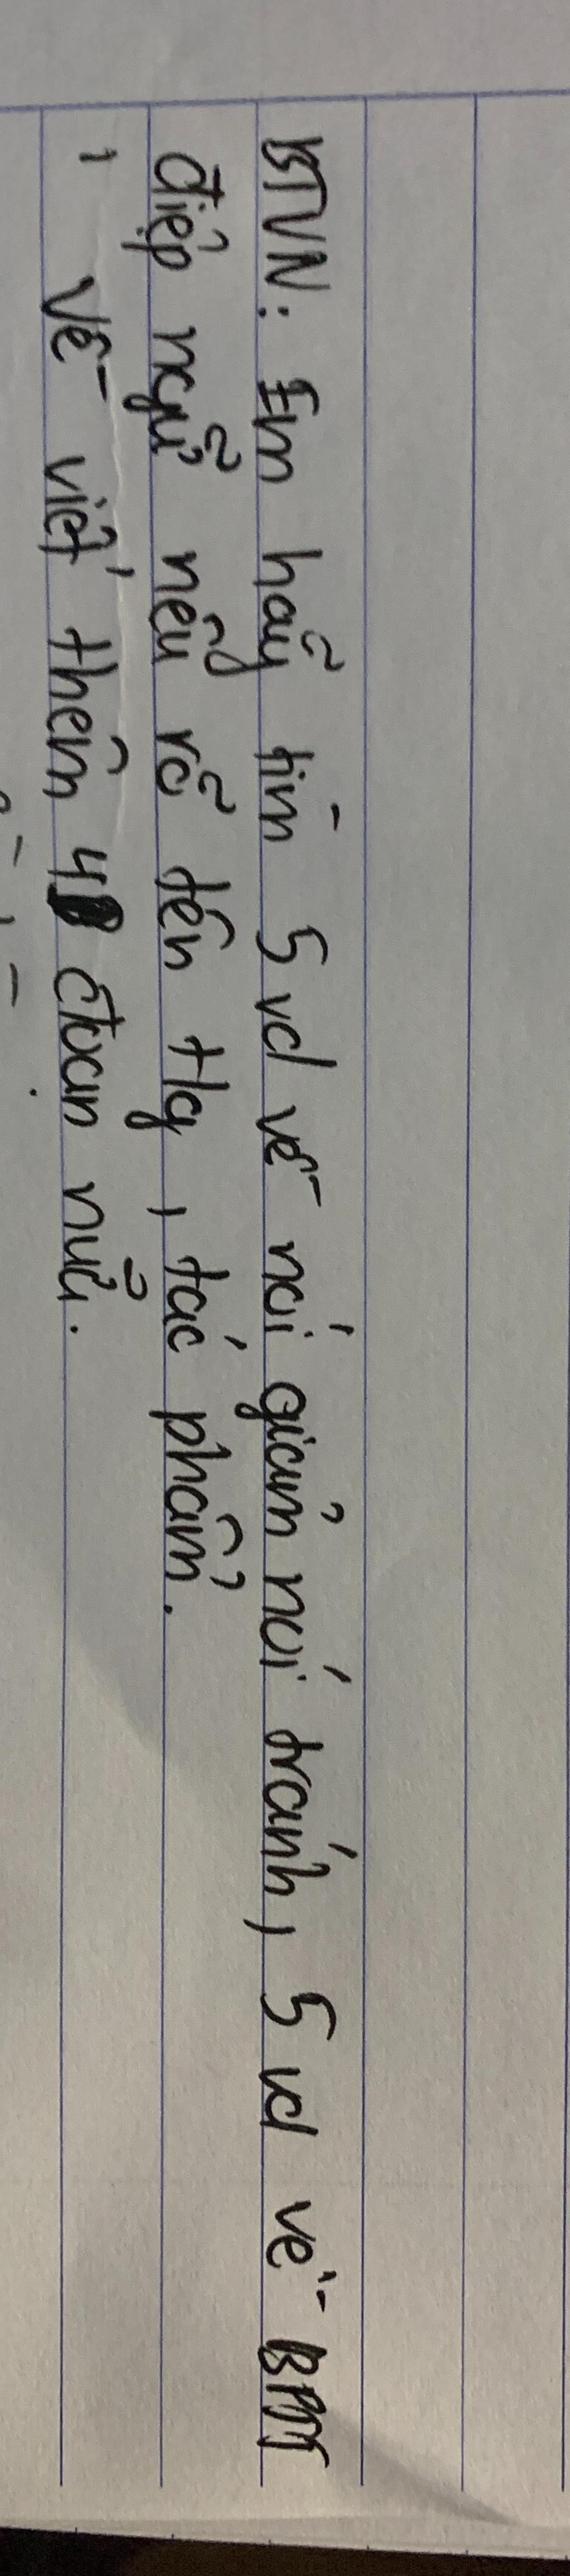 BTVN: Em hãy tìm 5 vd về nói giảm nói tránh, 5 vd về BPTT
điệp ngữ nêu rõ tên tg, tác phẩm.
, Về viết thêm 4 đoạn nữa.